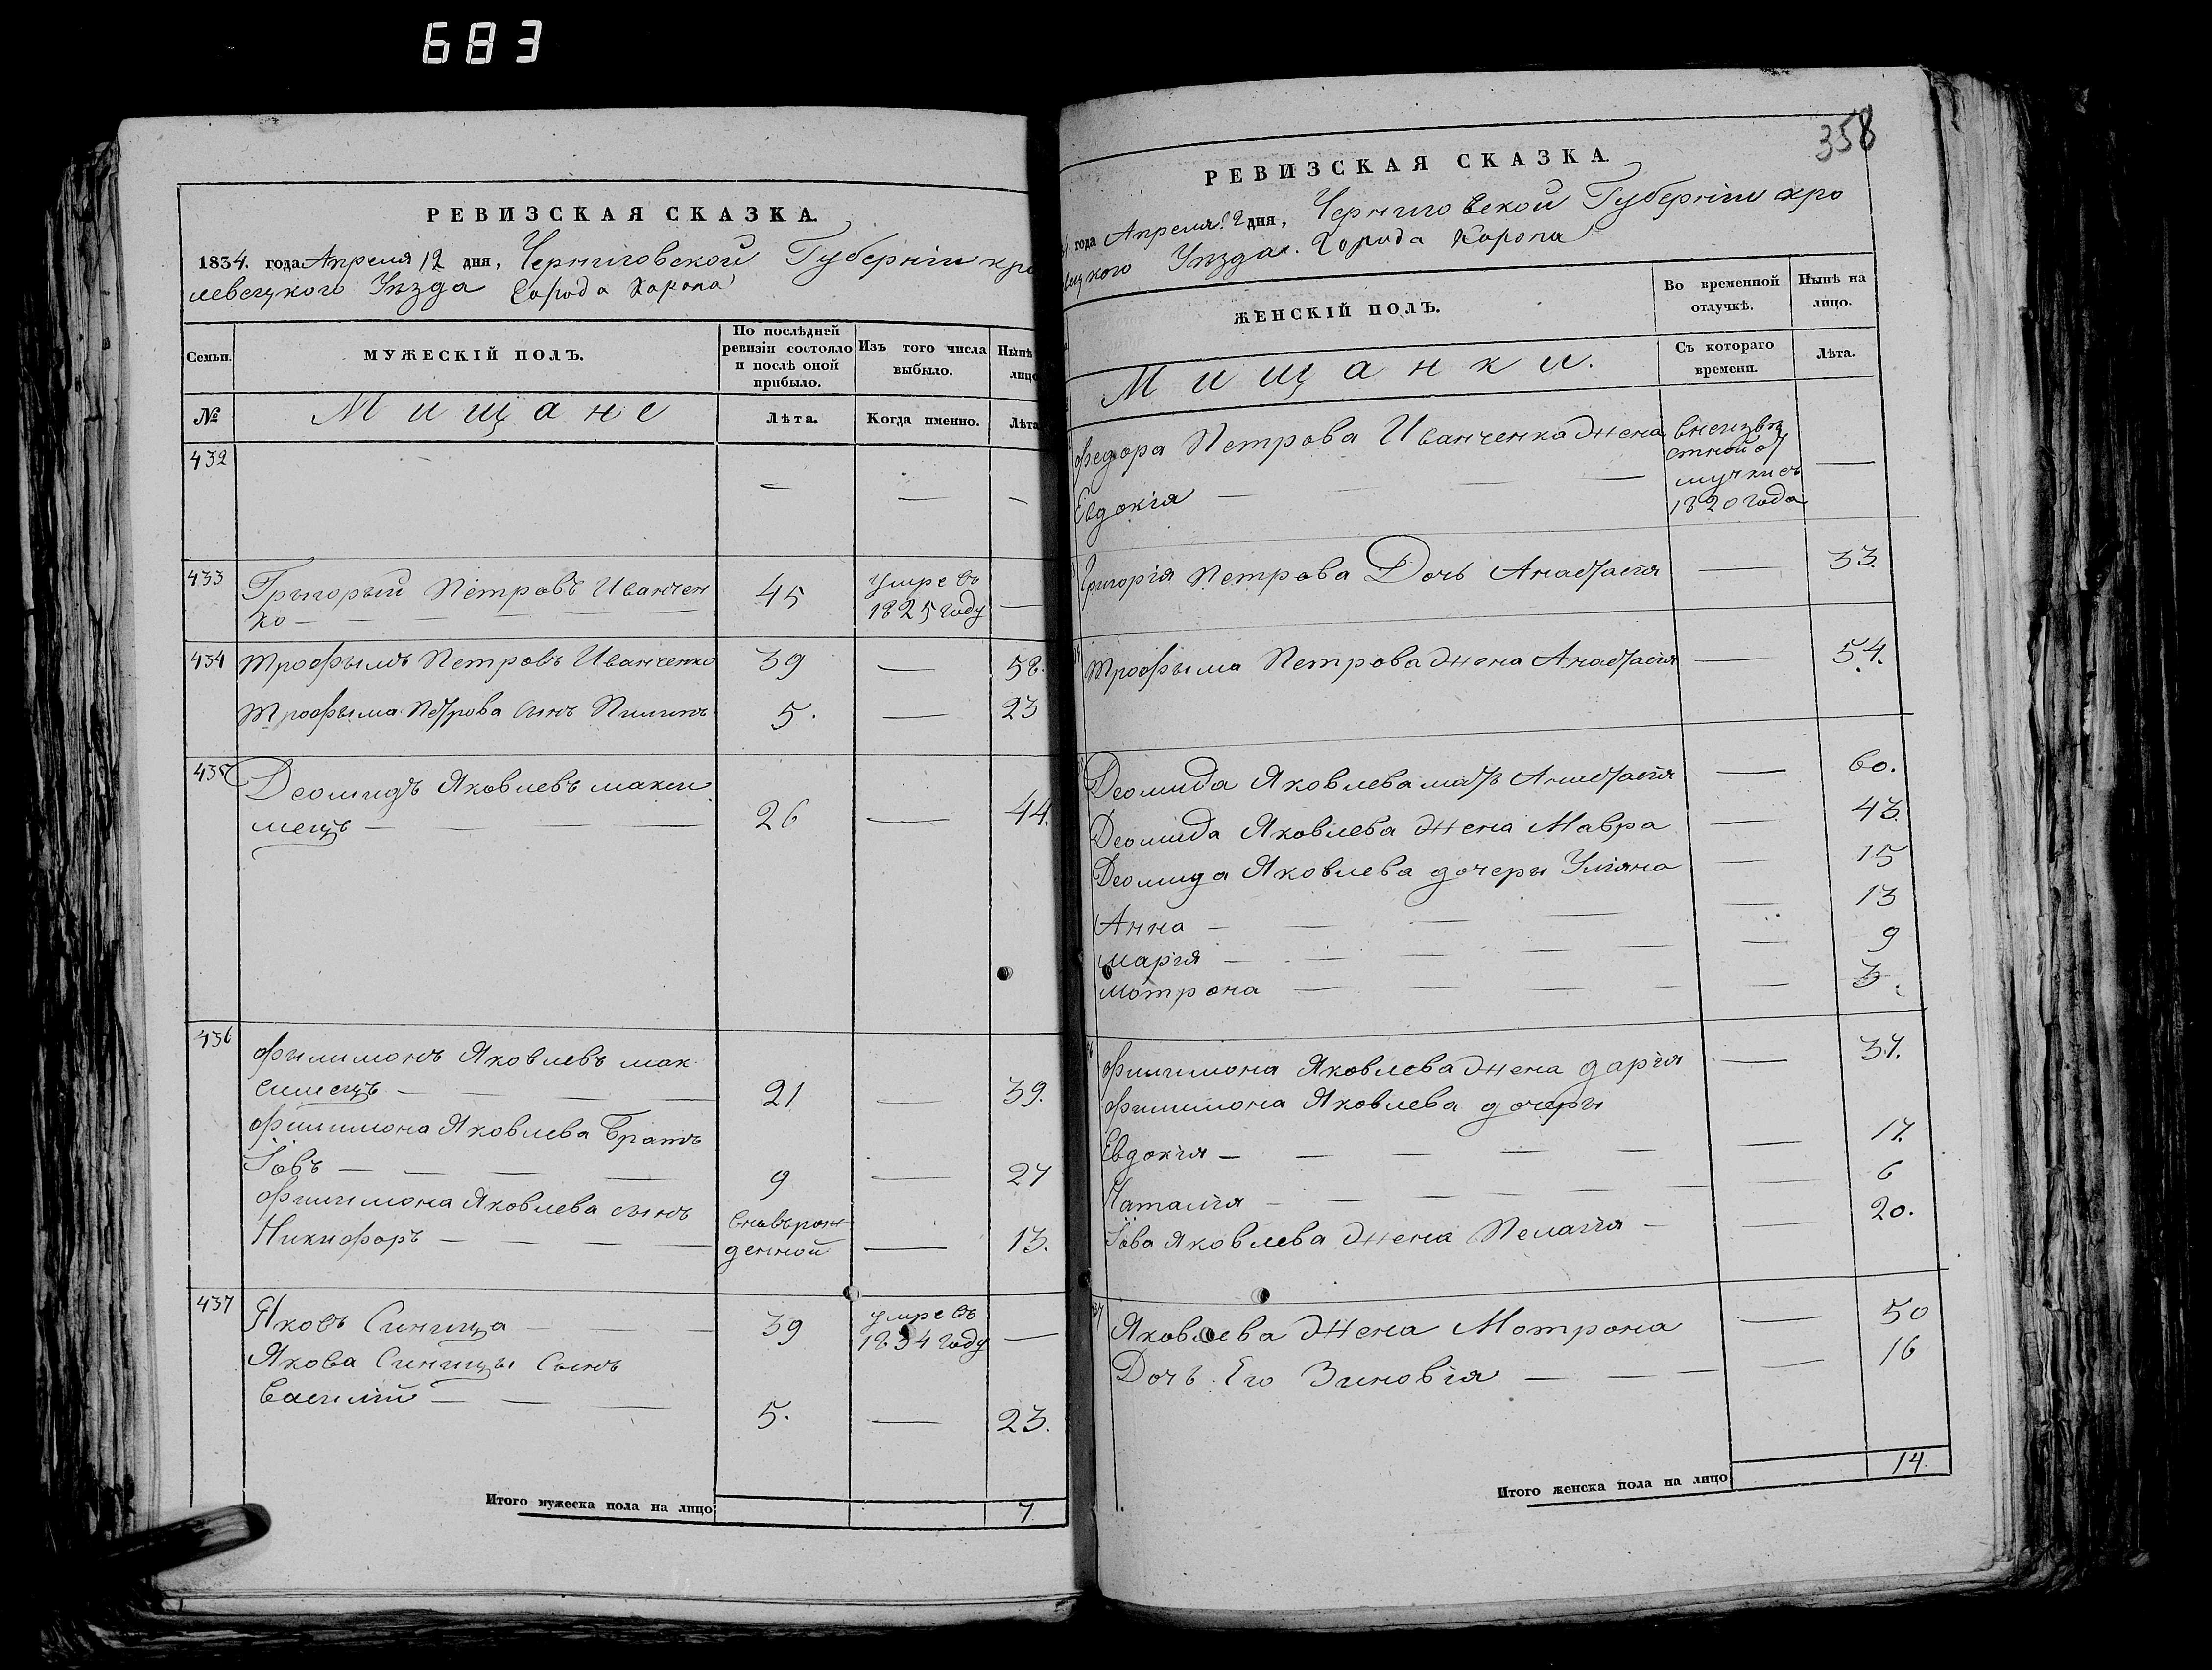 683
РЕВИЗСКАЯ СКАЗКА.
1834. года Апреля 12 дня, Черниговской Губернии кро
левецкого Уезда Города Коропа
Семьи.
МУЖЕСКІЙ ПОЛЪ.
По послѣдней ревизіи состояло и послѣ оной прибыло.
Изъ того числа выбыло.
Нынѣ
лицо
№
Мищане
Лѣта.
Когда именно.
Лѣта
432
— — —
433 Грыгорый Петровъ Иванчен
ко — 45 умре въ 1825 году —
434 Трофымъ Петровъ Иванченко 39 — 58.
Трофыма Петрова сынъ Пилипъ 5. — 23
435 Деомидъ Яковлевъ макси
мецъ — 26 — 44.
436 Фылимонъ Яковлевъ мак
симецъ — 21 — 39.
Филимона Яковлева Братъ
Іовъ — 9 — 27
Филимона Яковлева сынъ
Никифоръ — вновърож
денной — 13.
437 Яковъ Синица — 39 умре въ 1834 году —
Якова Синицы Сынъ
Василій — 5. — 23.
Итого мужеска пола на лицо 7
358
РЕВИЗСКАЯ СКАЗКА.
года Апреля 12 дня, Черниговской Губерніи кро
вецкого Уезда. Города Коропа
ЖЕНСКІЙ ПОЛЪ.
Во временной отлучкѣ.
Нынѣ на лицо.
Мищанки.
Съ котораго времени.
Лѣта.
Федора Петрова Иванченка жена внеизвѣ
стной от
Евдокія — лучкисъ —
1820 года
Григорія Петрова Дочь Анастасія — 33.
Трофыма Петрова жена Анастасія — 54.
Деомида Яковлева мать Анастасія — 60.
Деомида Яковлева жена Мавра — 43.
Деомида Яковлева дочеры Уліяна — 15
Анна — 13
марія — 9
мотрона — 3.
Филимона Яковлева жена дарія — 37.
Филимона Яковлева дочеры
Евдокія — 17.
Наталія — 6
Іова Яковлева жена Пелагія — 20.
37 Яковлева жена Мотрона — 50
Дочь Его Зиновія — 16
Итого женска пола на лицо 14.